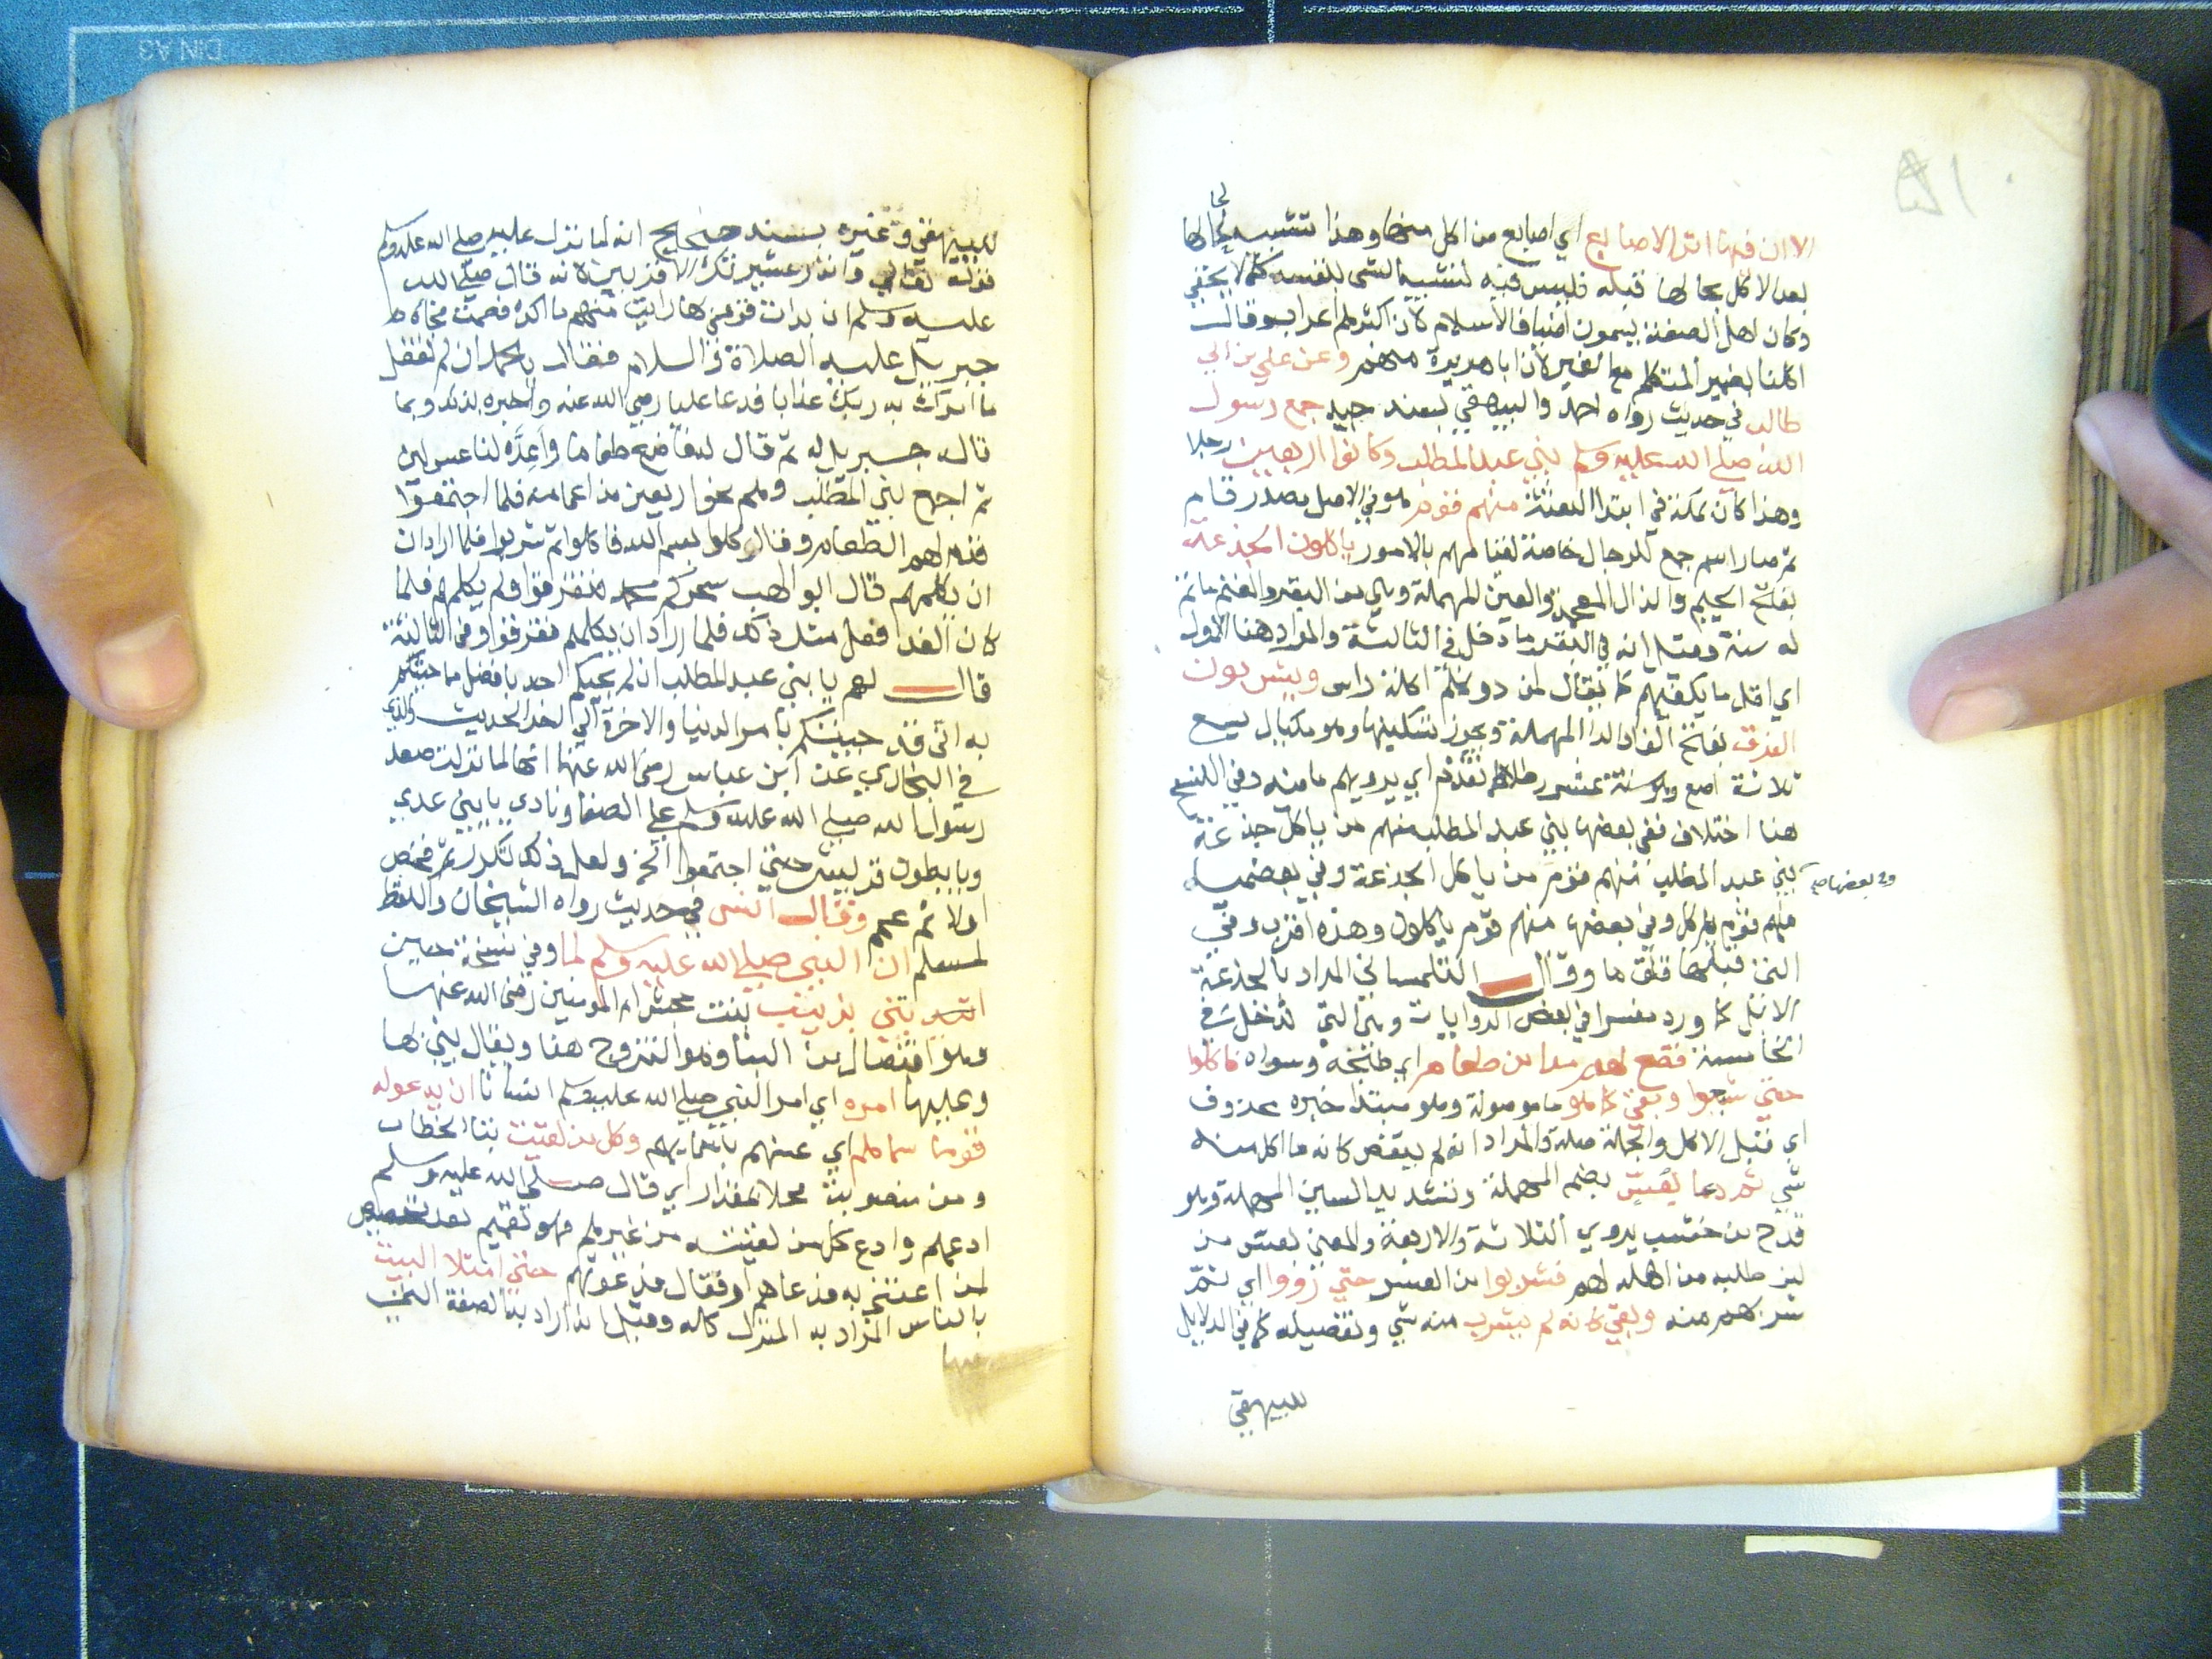 الا ان فيها اثر الاصابع اي اصابع من اكل منها وهذا تشبيه لحالها
بعد الاكل بحالها قبله فليس فيه تشبيه الشي بنفسه كما لا يخفي
وكان اهل الصفة يسمون اضياف الاسلام لان اكثرهم اعراب وقالت
اكلنا بضمير المتكلم مع الغير لان ابا هريرة منهم وعن علي بن ابي
طالب في حديث رواه احمد والبيهقي بسند جيد جمع رسول
الله صلى الله عليه وسلم بني عبد المطلب وكانوا اربعين رجلا
وهذا كان بمكة في ابتدا البعثة منهم قوم هو في الاصل مصدر قام
ثم صار اسم جمع للرجال خاصة لقيامهم بالامور ياكلون الجذعة
بفتح الجيم والذال المعجمة والعين المهملة وهي من البقر والغنم ما تم
له سنة وقيل انه في البقر ما دخل في الثالثة والمراد هنا الاول
اي اقل ما يكفيهم كما يقال لمن دونهم اكلة راس ويشربون
الفرق بفتح الفا والرا المهملة ويجوز تسكينها وهو مكيال يسع
ثلاثة اصع وهو ستة عشر رطلا كما تقدم اي يرويهم ما فيه وفي النسخ
هنا اختلاف ففي بعضها بني عبد المطلب منهم من ياكل جذعة
وفي بعضها صح
بني عبد المطلب منهم قوم من ياكل الجذعة وفي بعضها
منهم قوم كل وفي بعضها منهم قوم ياكلون وهذه اقرب وفي
التي قبلها قلق ما وقال التلمساني المراد بالجذعة
الابل كما ورد مفسرا في بعض الروايات وهي التي تدخل في
الخامسة فصنع لهم مدا من طعام اي طبخه وسواه فاكلوا
حتي شبعوا وبقي كما هو ما موصولة وهو مبتدا خبره محذوف
اي قبل الاكل والجملة صلة والمراد انه لم ينقص كانه ما اكل منه
شي ثم دعا بعس بضم المهملة وتشديد السين المهملة وهو
قدح من خشب يروي الثلاثة والاربعة والمعني بعس من
لبن طلبه من اهله لهم فشربوا من العس حتي رووا اي تم
شربهم منه وبقي كانه لم يشرب منه شي وتفصيله كما في الدلايل
للبيهقي
للبيهقي وغيره بسند صحيح انه لما نزل عليه صلى الله عليه وسلم
قوله تعالي وانذر عشيرتك الاقربين لانه قال صلى الله
عليه وسلم ان بدات قومي بها رايت منهم ما اكره فصمت فجاءه
جبريل عليه الصلاة والسلام فقال يا محمد ان لم تفعل
ما امرك به ربك عذابا فدعا عليا رضي الله عنه واخبره بذلك وبما
قال جبريل له ثم قال له فاصنع طعاما واعده لنا عس لبن
ثم اجمع بني المطلب وهم نحو اربعين من اعمامه فلما اجتمعوا
قدم لهم الطعام وقال كلوا بسم الله فاكلوا ثم شربوا فلما اراد ان
ان يكلمهم قال ابو لهب سحركم فتفرقوا ولم يكلمهم فلما
كان الغد فعل مثل ذلك فلما اراد ان يكلمهم تفرقوا وفي الثالثة
قال لهم يا بني عبد المطلب ان لم يجيكم احد بافضل ما جيتكم
به اني قد جيتكم بامر الدنيا والاخرة الي اخر الحديث والذي
في البخاري عن ابن عباس رضي الله عنهما انها لما نزلت صعد
رسول الله صلى الله عليه وسلم علي الصفا ونادي يا بني عدي
ويا بطون قريش حتي اجتمعوا الخ ولعل ذلك تكرر ثم فخص
اولا ثم عمم وقال انس في حديث رواه الشيخان واللفظ
لمسلم ان النبي صلى الله عليه وسلم لما وفي نسخة حين
ابتني بزينب بنت جحش ام المومنين رضي الله عنها
وهو افتعال من البنا وهو التزوج هنا ويقال بني بها
وعليها امره اي امر النبي صلى الله عليه وسلم انسا نا ان يدعو له
قوما سماهم اي عينهم باسمايهم وكل من لقيت بتا الخطاب
ومن منصوبة محلا بمقدار اي قال صلى الله عليه وسلم
ادعهم وادع كل من لقيته من غيرهم فهو تعميم بعد تخصيص
لمن اعتني به فدعاهم او فقال فدعوتهم حتي امتلا البيت
بالناس المراد به المنزل كله وقيل انه اراد به الصفة التي
فيها